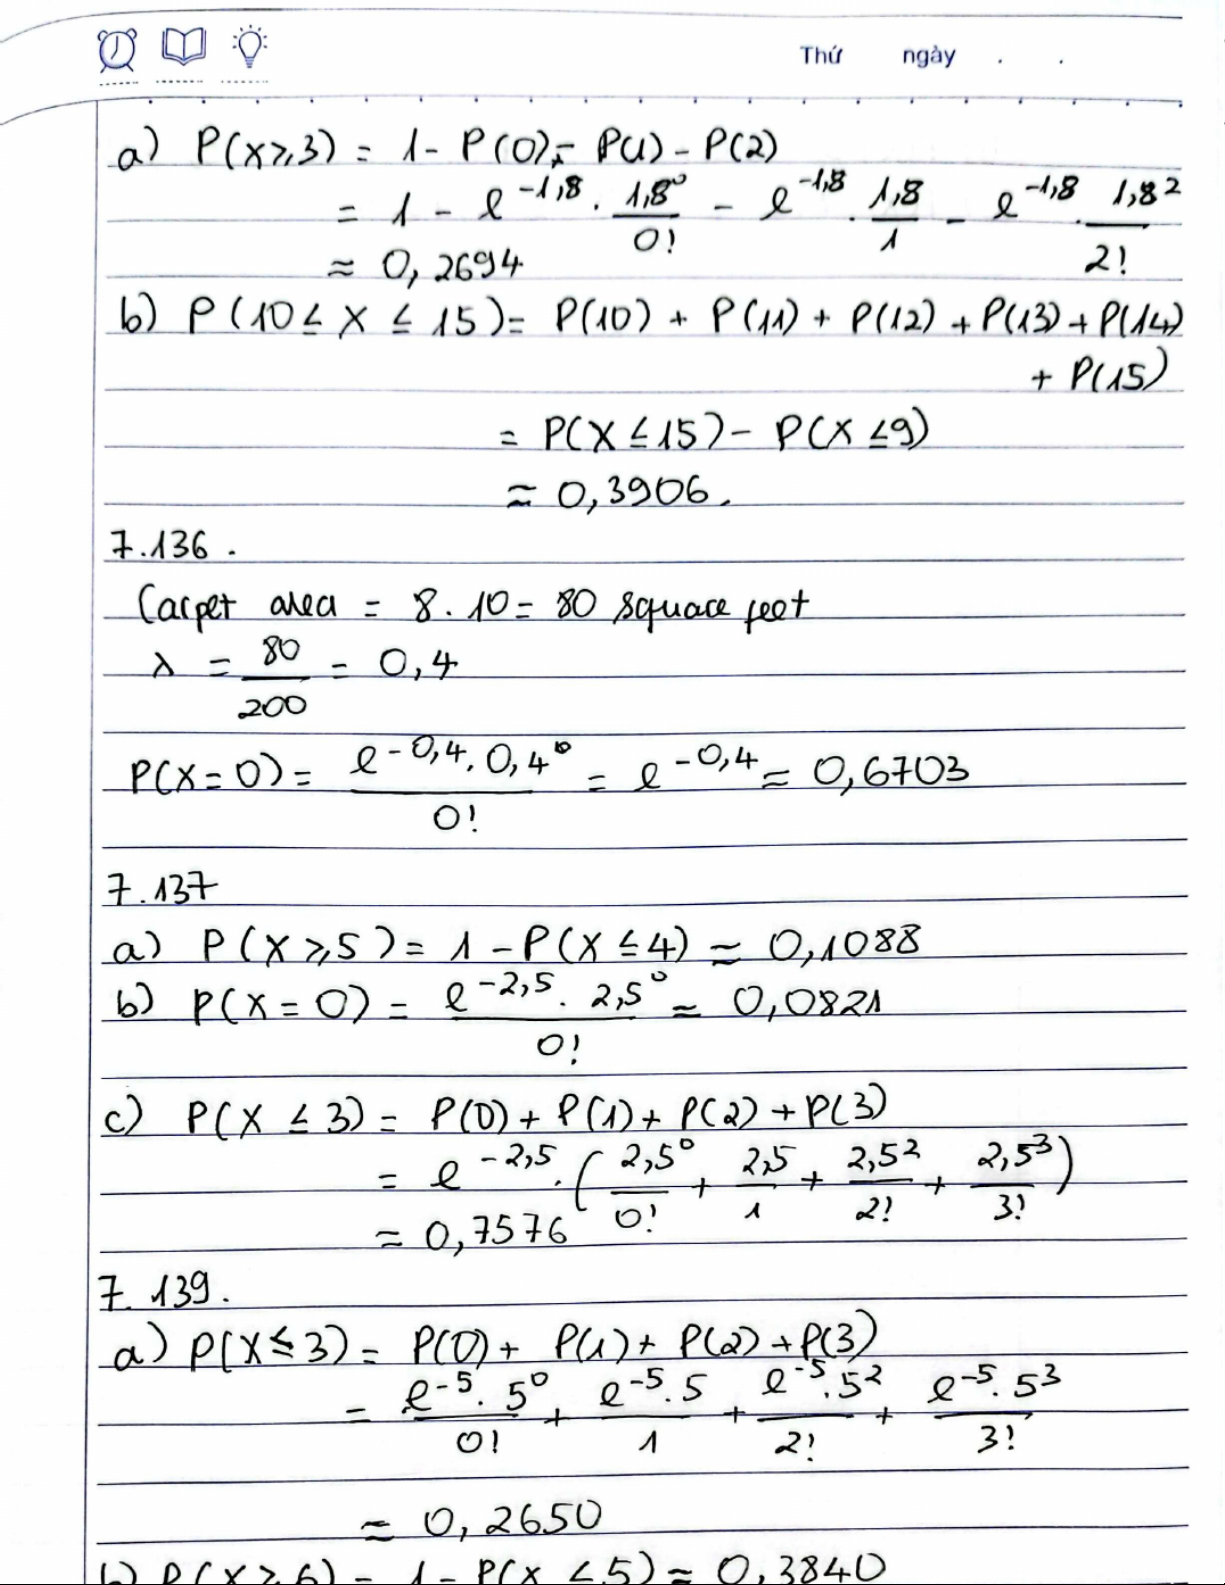 Thứ ngày . .
a) P(X≥3) = 1 - P(0) - P(1) - P(2)
= 1 - e^-1,8 . 1,8^0/0! - e^-1,8 . 1,8/1 - e^-1,8 . 1,8^2/2!
≈ 0,2694
b) P(10 ≤ X ≤ 15) = P(10) + P(11) + P(12) + P(13) + P(14)
+ P(15)
= P(X ≤ 15) - P(X ≤ 9)
≈ 0,3906.
7.136.
Carpet area = 8 . 10 = 80 square feet
λ = 80/200 = 0,4
P(X = 0) = e^-0,4 . 0,4^0/0! = e^-0,4 ≈ 0,6703
7.137
a) P(X ≥ 5) = 1 - P(X ≤ 4) ≈ 0,1088
b) P(X = 0) = e^-2,5 . 2,5^0/0! ≈ 0,0821
c) P(X ≤ 3) = P(0) + P(1) + P(2) + P(3)
= e^-2,5 . (2,5^0/0! + 2,5/1 + 2,5^2/2! + 2,5^3/3!)
≈ 0,7576
7.139.
a) P(X ≤ 3) = P(0) + P(1) + P(2) + P(3)
= e^-5 . 5^0/0! + e^-5 . 5/1 + e^-5 . 5^2/2! + e^-5 . 5^3/3!
≈ 0,2650
b) P(X ≥ 6) = 1 - P(X ≤ 5) ≈ 0,3840